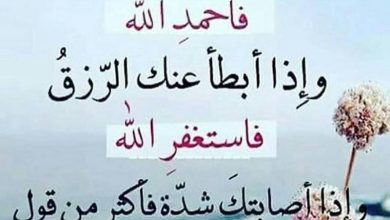 فاحمدِ الله
وإِذا أبطأ عنك الرّزقُ
فاستغفرِ الله
وإذا أصابتكَ شدّة فأكثر من قول